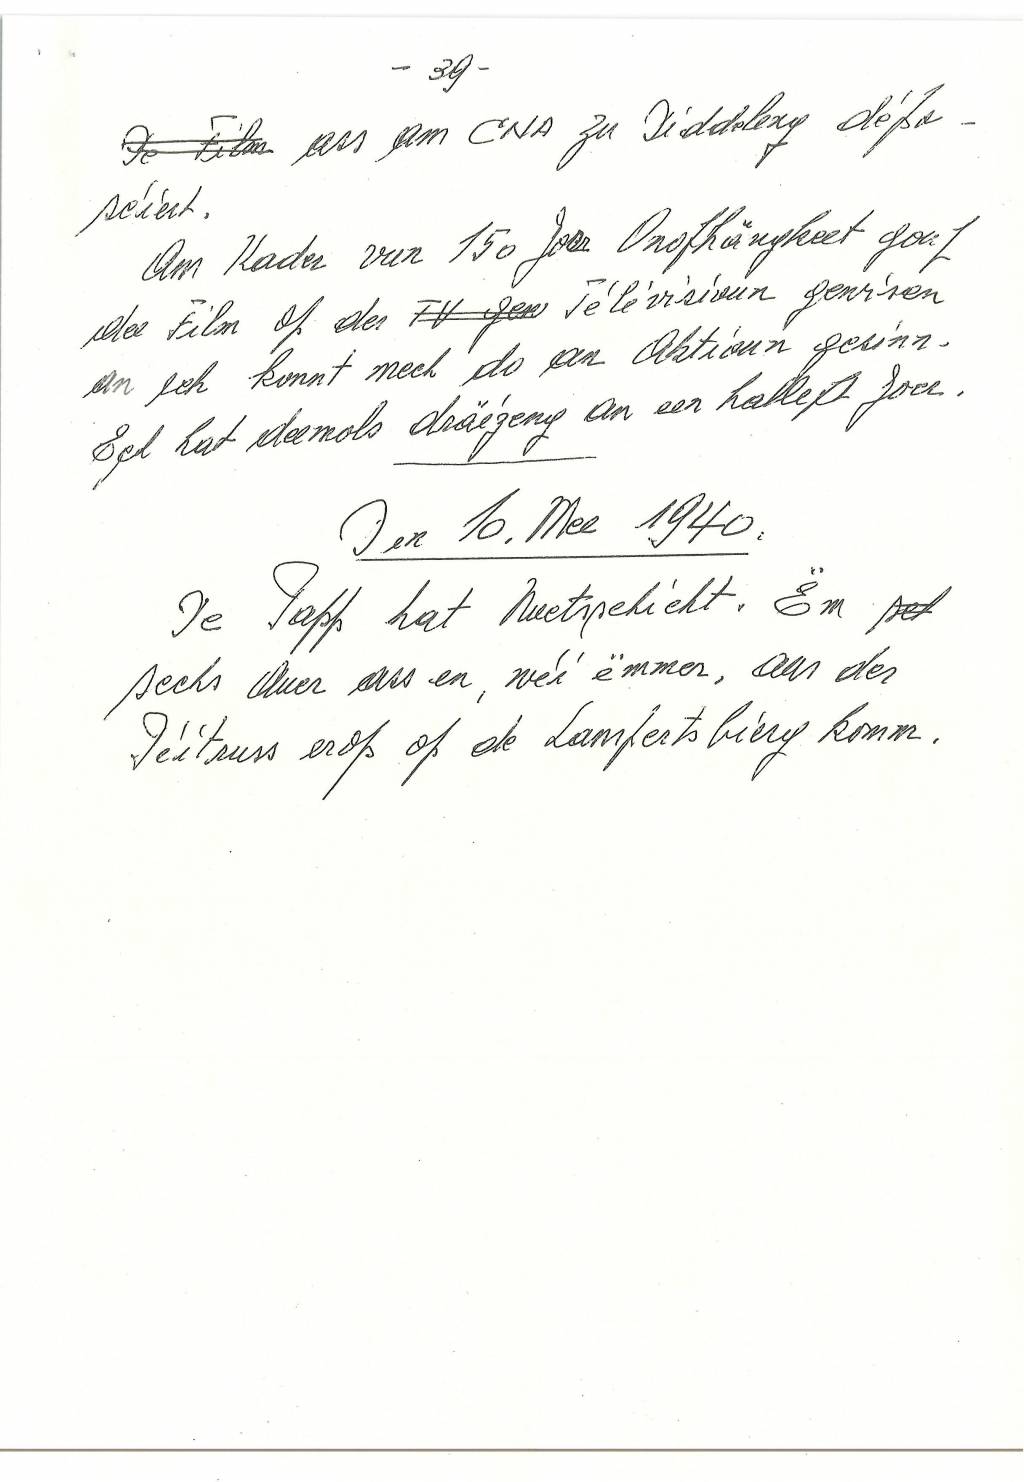 - 39 -
De Film ass am CNA zu Diddeleng dépo-
séiert.
Am Kader vun 150 Joer Onofhängkeet gouf
dee Film op der TV gew Télévisioun gewisen
an ech konnt mech do an Aktioun gesinn.
Ech hat deemols dräizeng an een hallept Joer.
Den 10. Mee 1940.
De Papp hat Nuetsschicht. Ëm
sechs Auer ass en, wéi ëmmer, aus der
Péitruss erop op de Lampertsbierg komm.